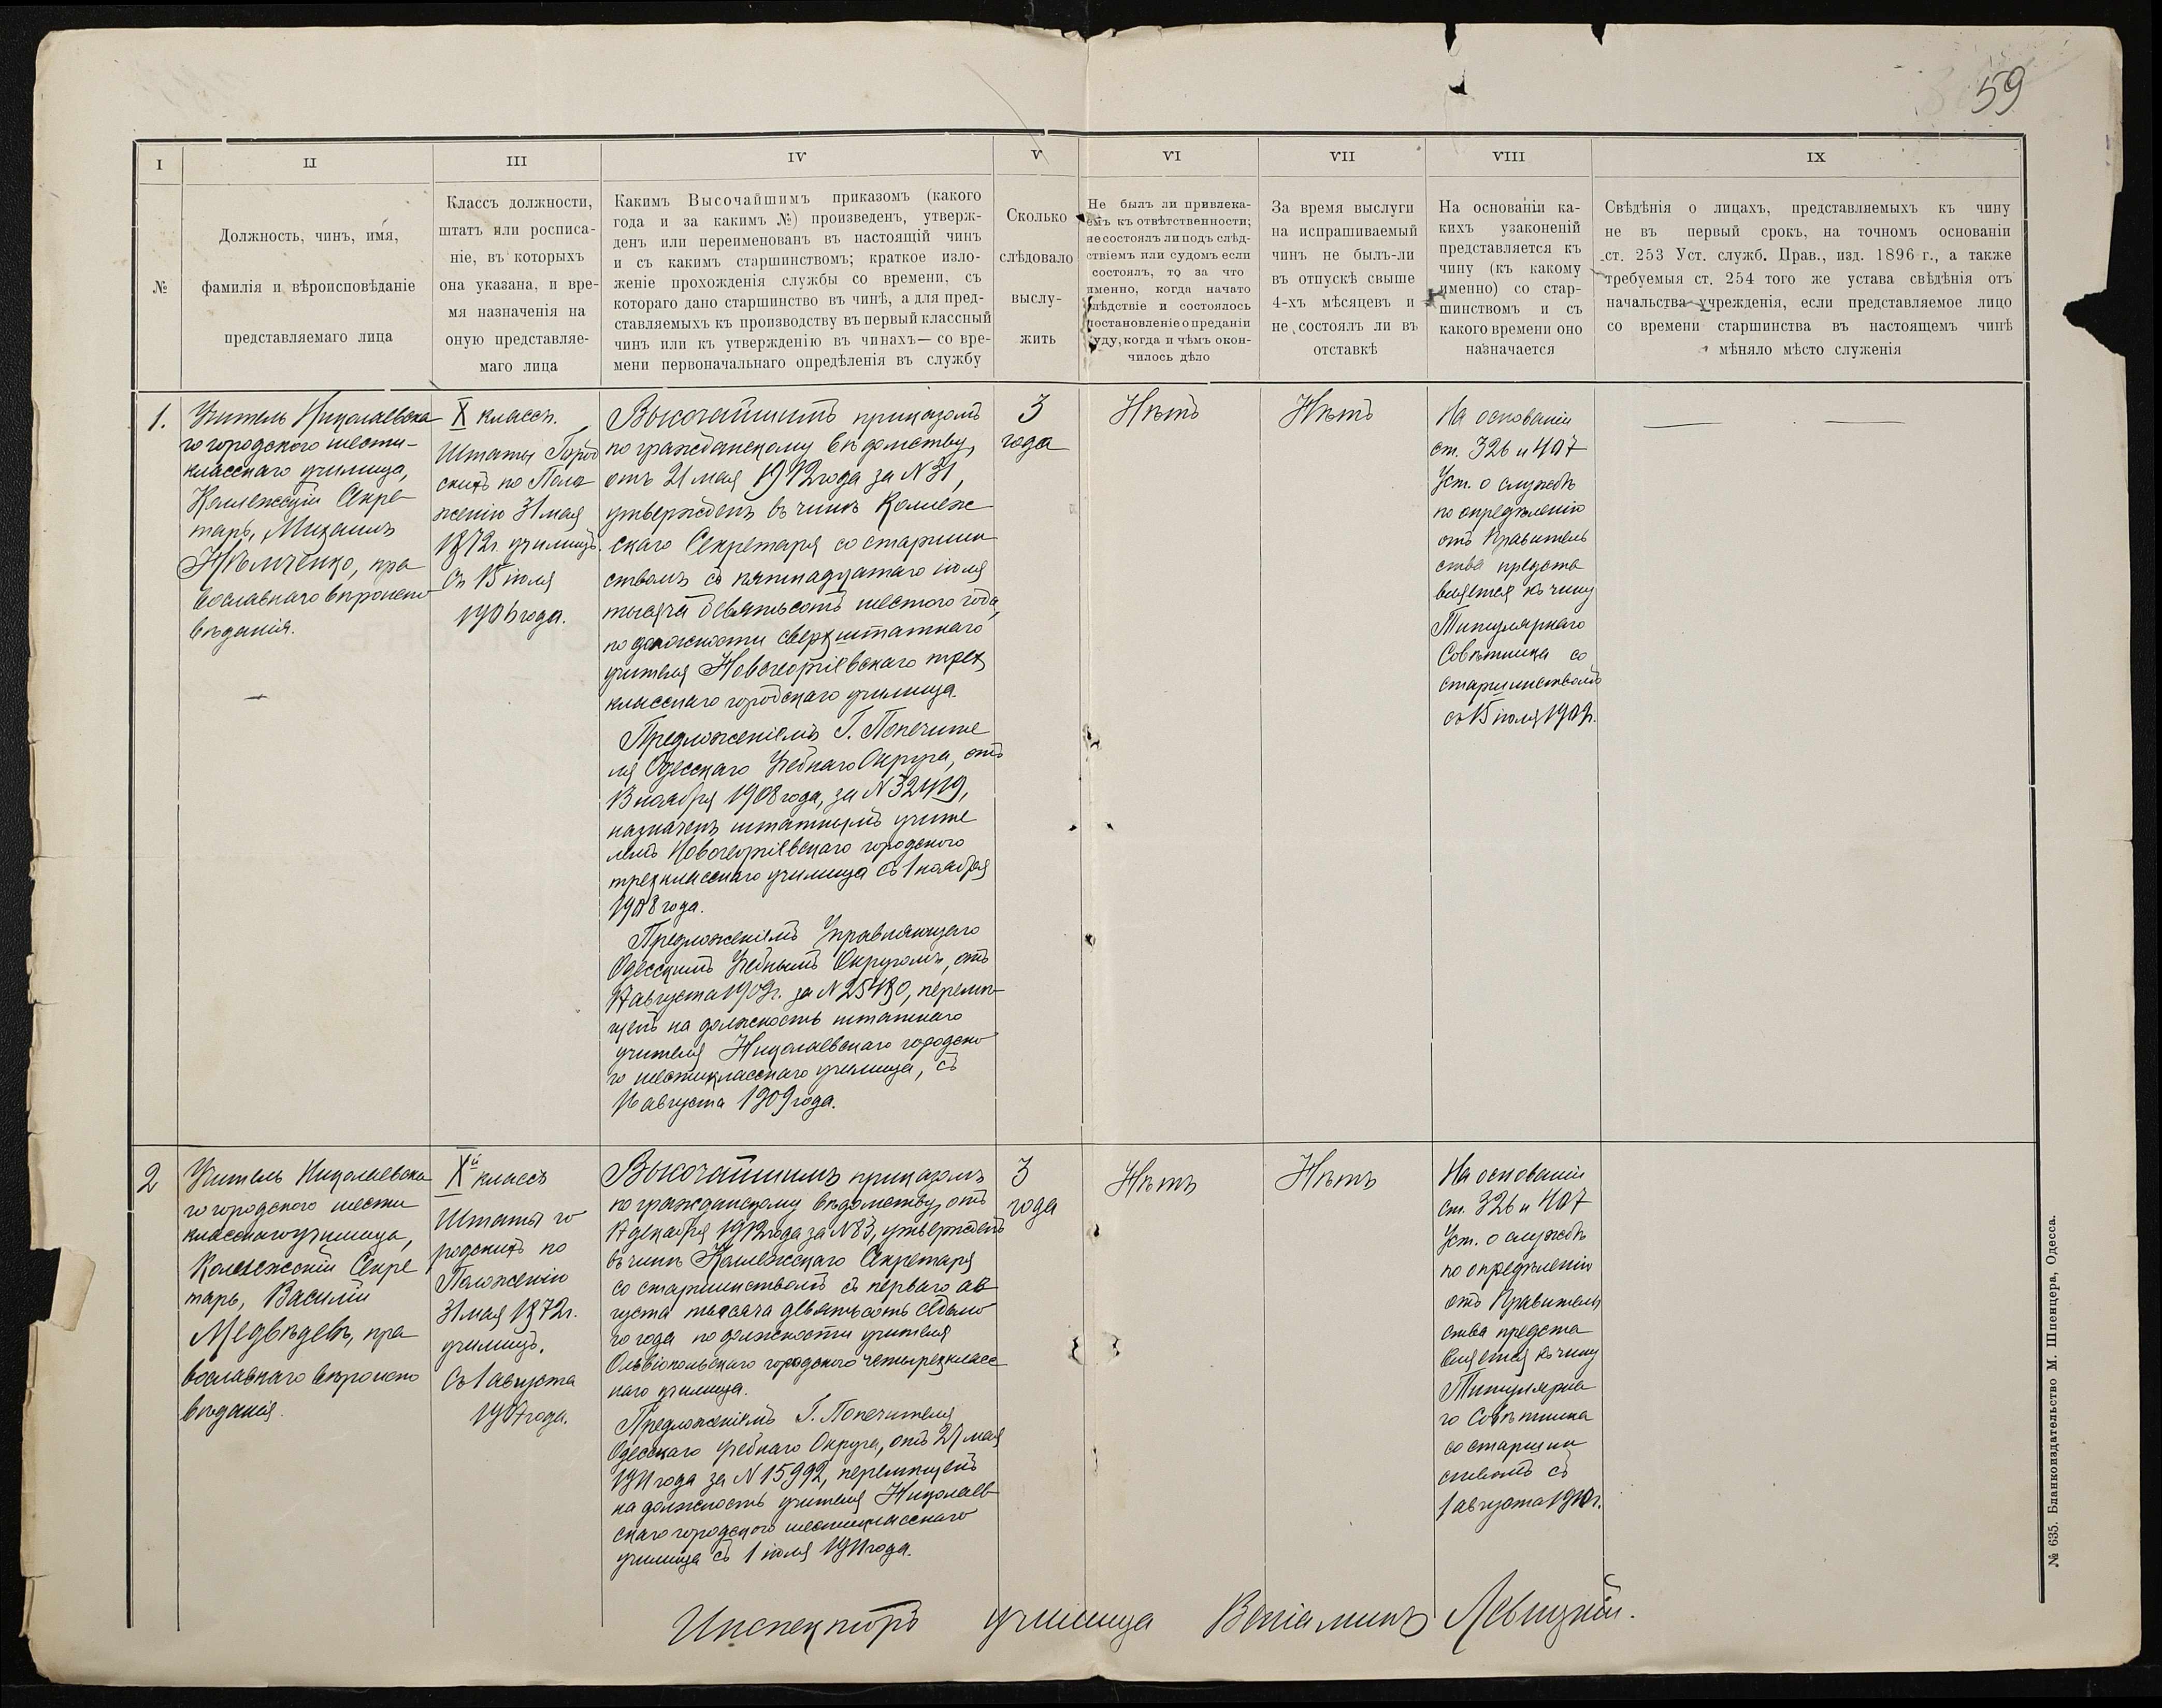 59
I
II
III
IV
V
VI
VII
VIII
IX
№
Должность, чинъ, имя,
фамилія и вѣроисповѣданіе
представляемаго лица
Классъ должности,
штатъ или росписа-
ніе, въ которыхъ
она указана, и вре-
мя назначенія на
оную представляе-
маго лица
Какимъ Высочайшимъ приказомъ (какого
года и за какимъ №) произведенъ, утверж-
денъ или переименованъ въ настоящій чинъ
и съ какимъ старшинствомъ; краткое изло-
женіе прохожденія службы со времени, съ
котораго дано старшинство въ чинѣ, а для пред-
ставляемыхъ къ производству въ первый классный
чинъ или къ утвержденію въ чинахъ—со вре-
мени первоначальнаго опредѣленія въ службу
Сколько
слѣдовало
выслу-
жить
Не былъ ли привлека-
емъ къ отвѣтственности;
не состоялъ ли подъ слѣд-
ствіемъ или судомъ если
состоялъ, то за что
именно, когда начато
слѣдствіе и состоялось
постановленіе о преданіи
суду, когда и чѣмъ окон-
чилось дѣло
За время выслуги
на испрашиваемый
чинъ не былъ-ли
въ отпускѣ свыше
4-хъ мѣсяцевъ и
не состоялъ ли въ
отставкѣ
На основаніи ка-
кихъ узаконеній
представляется къ
чину (къ какому
именно) со стар-
шинствомъ и съ
какого времени оно
назначается
Свѣдѣнія о лицахъ, представляемыхъ къ чину
не въ первый срокъ, на точномъ основаніи
ст. 253 Уст. служб. Прав., изд. 1896 г., а также
требуемыя ст. 254 того же устава свѣдѣнія отъ
начальства учрежденія, если представляемое лицо
со времени старшинства въ настоящемъ чинѣ
мѣняло мѣсто служенія
1.
Учитель Николаевска
го городского шести-
класснаго училища,
Коллежскій Секре
тарь, Михаилъ
Нѣмченко, пра
вославнаго вѣроиспо
вѣданія.
X классъ.
Штаты Город
скихъ по Поло
женію 31 мая
1872 г. училищъ.
Съ 15 іюля
1906 года.
Высочайшимъ приказомъ
по гражданскому вѣдомству,
отъ 21 мая 1912 года за N 31,
утвержденъ въ чинѣ Коллеж
скаго Секретаря со старшин
ствомъ съ пятнадцатаго іюля
тысяча девятьсотъ шестого года,
по должности сверхштатнаго
учителя Новогеоргіевскаго трех
класснаго городскаго училища.
Предложеніемъ Г. Попечите
ля Одесскаго Учебнаго Округа, отъ
13 ноября 1908 года, за N 32419,
назначенъ штатнымъ учите
лемъ Новогеоргіевскаго городского
трехкласснаго училища съ 1 ноября
1908 года.
Предложеніемъ Управляющаго
Одесскимъ Учебнымъ Округомъ, отъ
августа 1909 г. за перемѣ
щенъ на должность штатнаго
учителя Николаевскаго городско
го шестикласснаго училища, съ
16 августа 1909 года.
3
года
Нѣтъ
Нѣтъ
На основаніи
ст. 326 и 407
Уст. о службѣ
по опредѣленію
отъ Правитель
ства предста
вляется къ чину
Титулярнаго
Совѣтника со
старшинствомъ
съ 15 іюля 1909 г.
2
Учитель Николаевска
го городского шести
класснаго училища,
Коллежскій Секре
тарь, Василій
Медвѣдевъ, пра
вославнаго вѣроиспо
вѣданія.
Xй классъ
Штаты го
родскихъ по
Положенію
31 мая 1872 г.
училищъ.
Съ 1 августа
1907 года.
Высочайшимъ приказомъ
по гражданскому вѣдомству, отъ
17 декабря 1912 года за N 83, утвержденъ
въ чинѣ Коллежскаго Секретаря
со старшинствомъ съ перваго ав
густа тысяча девятьсотъ седьмо
го года по должности учителя
Ольвіопольскаго городского четырехкласс
наго училища.
Предложеніемъ Г. Попечителя
Одесскаго Учебнаго Округа, отъ 27 мая
1911 года за N 15992, перемѣщенъ
на должность учителя Николаев
скаго городского шестикласснаго
училища съ 1 іюля 1911 года.
3
года
Нѣтъ
Нѣтъ
На основаніи
ст. 326 и 407
Уст. о службѣ
по опредѣленію
отъ Правитель
ства предста
вляется къ чину
Титулярна
го Совѣтника
со старшин
ствомъ съ
1 августа 1910 г.
Инспекторъ училища Веніаминъ Левицкій.
№ 635. Бланкоиздательство М. Шпенцера, Одесса.